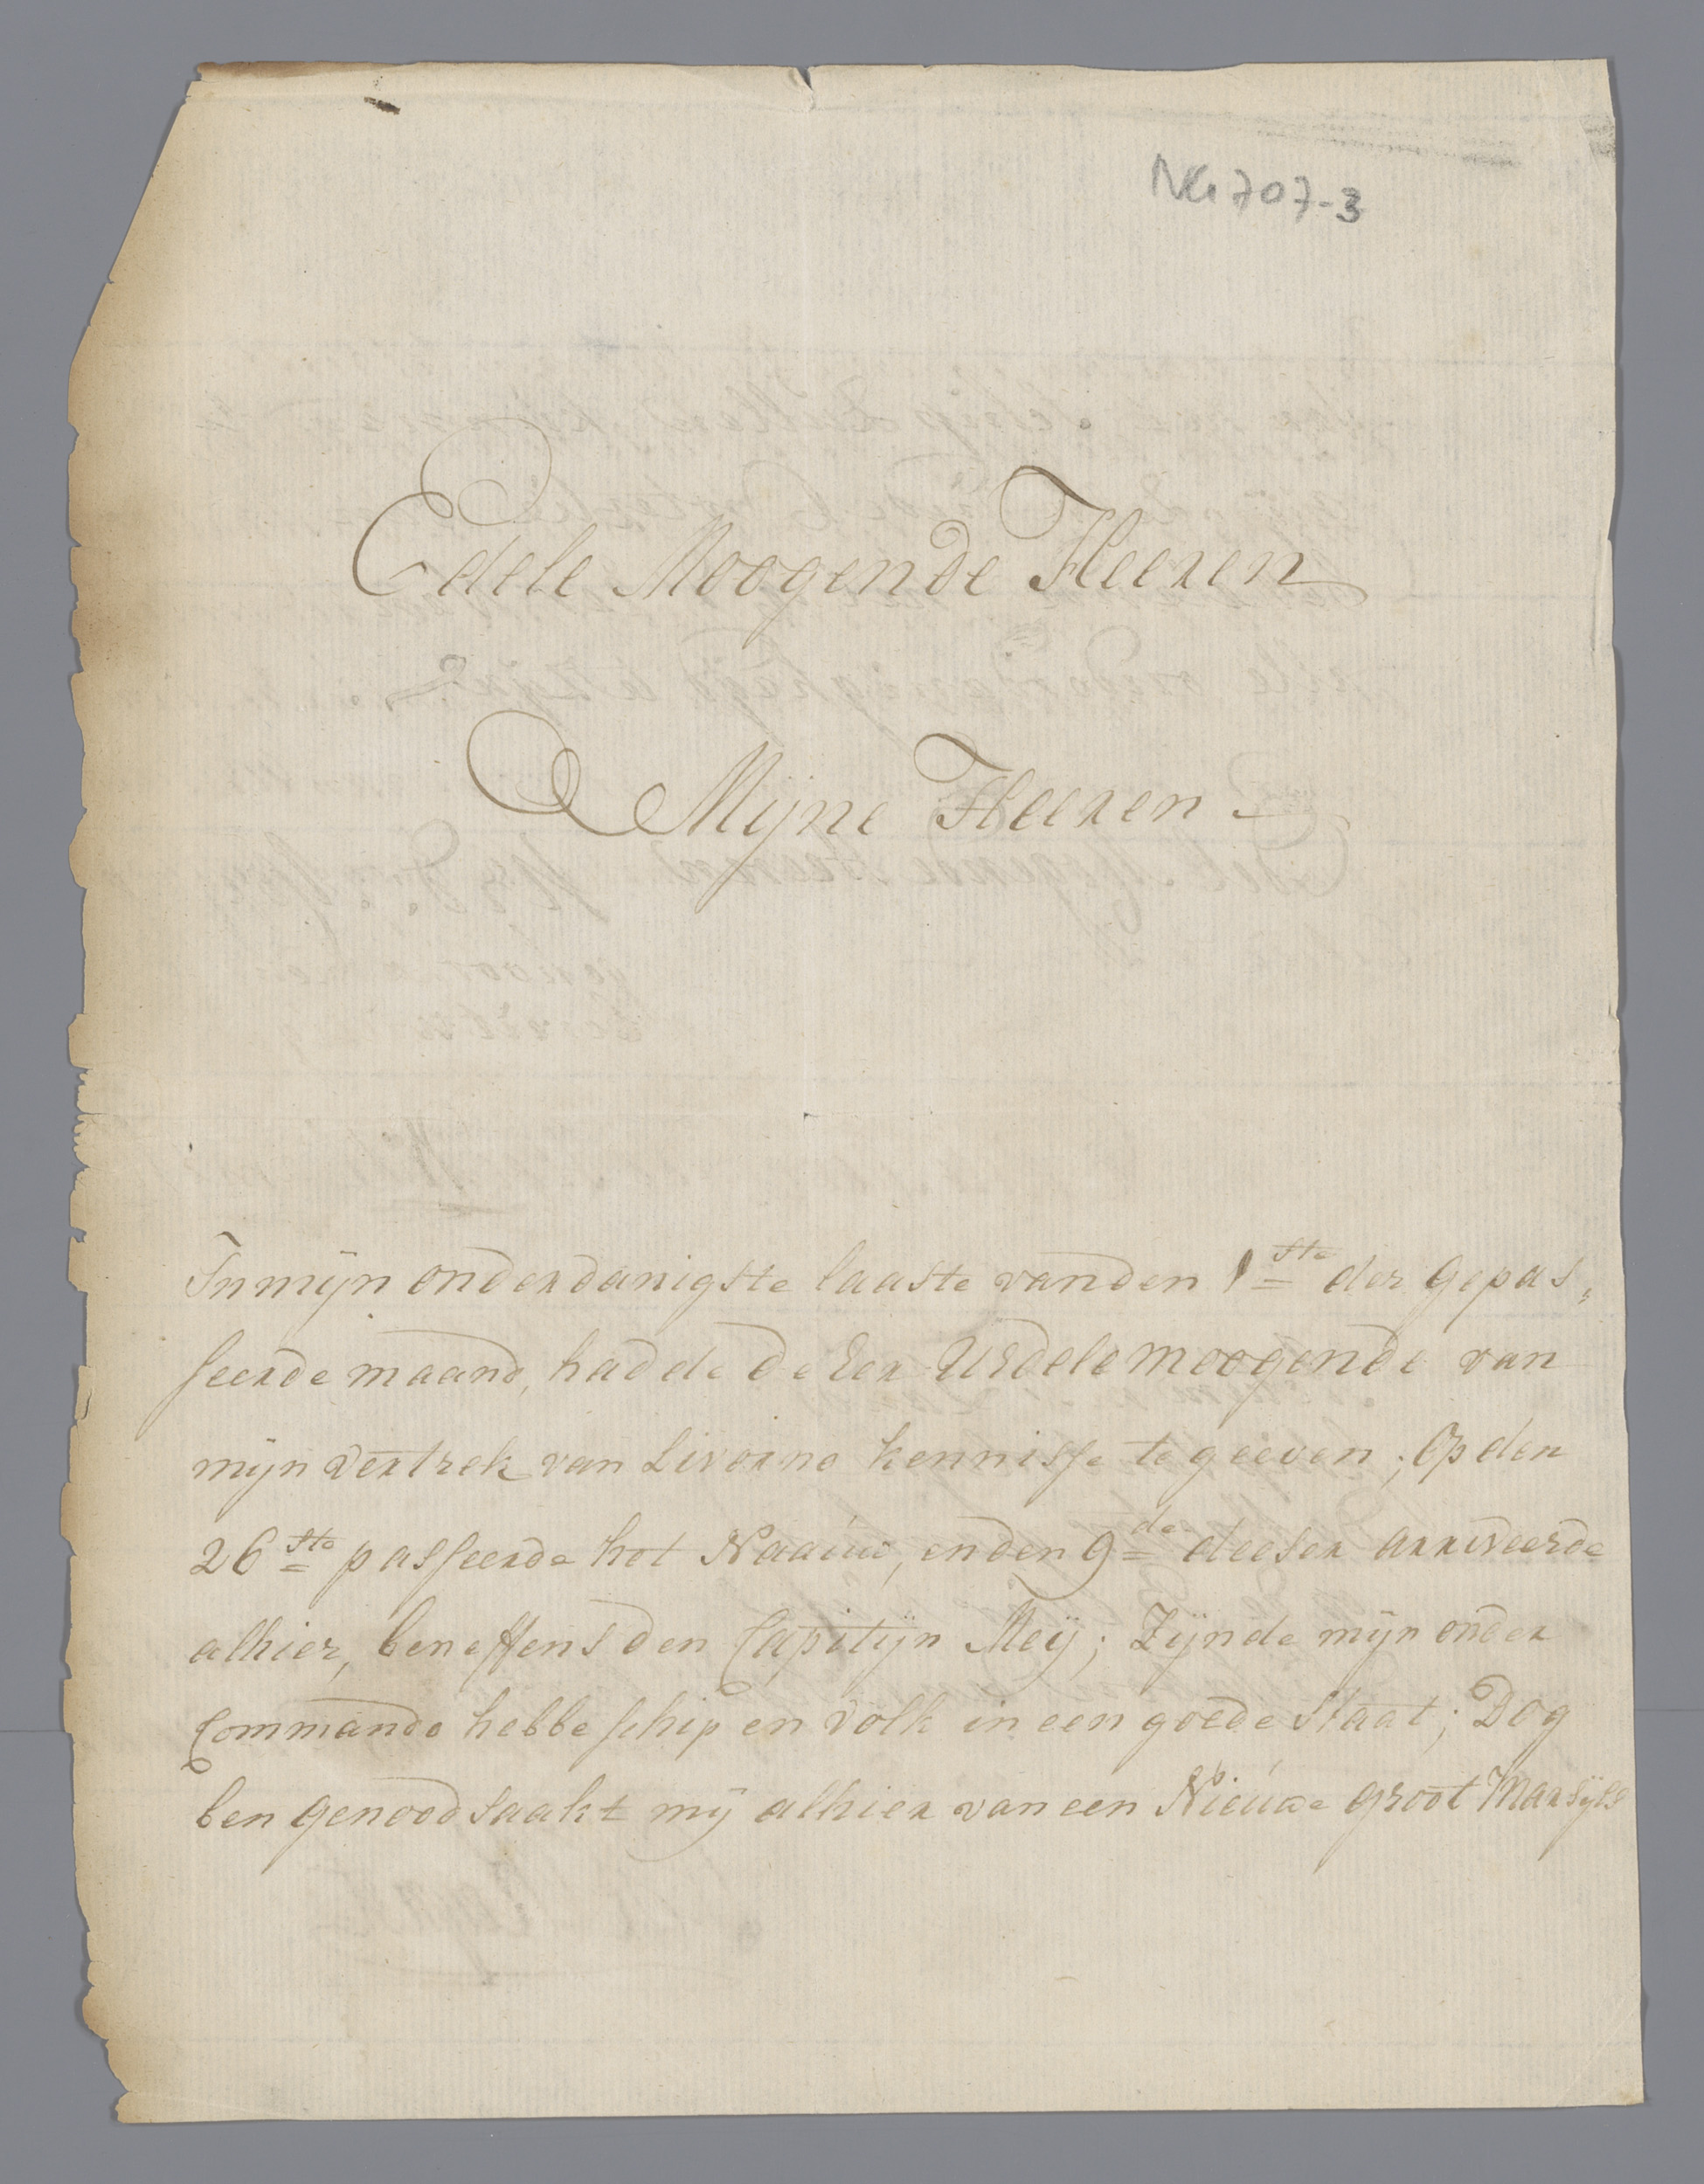 NG 707-3
Edele Moogende Heeren
Mijne Heeren
In mijn onderdanigste laaste van den 1ste der gepas„
seerde maand, hadde de Eer UEdele moogende van
mijn vertrek van Livorno kennisse te geeven; Op den
26ste passeerde het Naaúw, en den 9de deeser arriveerde
alhier, beneffens den Capitijn Meij; Zijnde mijn onder
Commando hebbe schip en volk in een goede staat; Dog
ben genoodsaakt mij alhier van een Nieúwe groot Marsijls